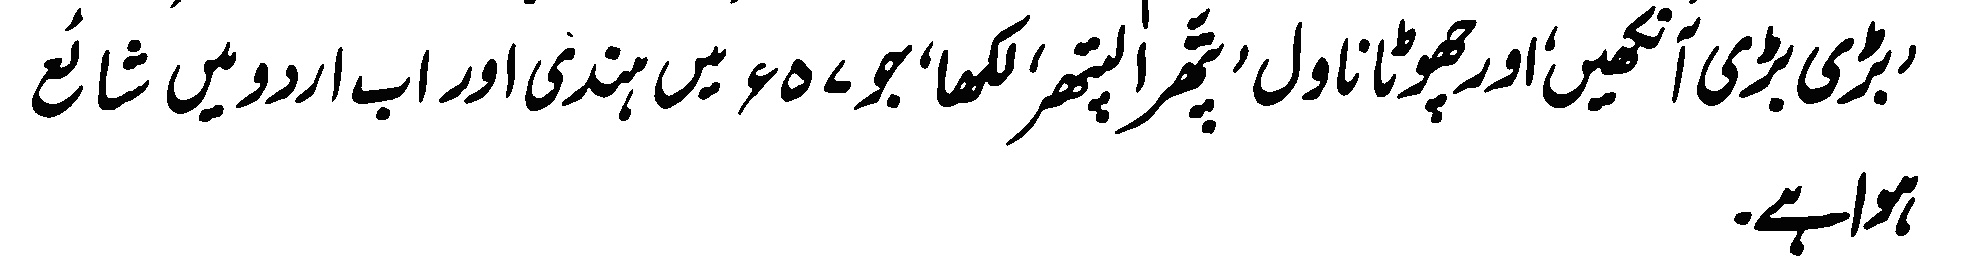 ’بڑی بڑی آنکھیں‘ اور چھوٹا ناول ’پتھر الپتھر‘ لکھا، جو ۵۷ء میں ہندی اور اب اردو میں شائع
ہوا ہے۔